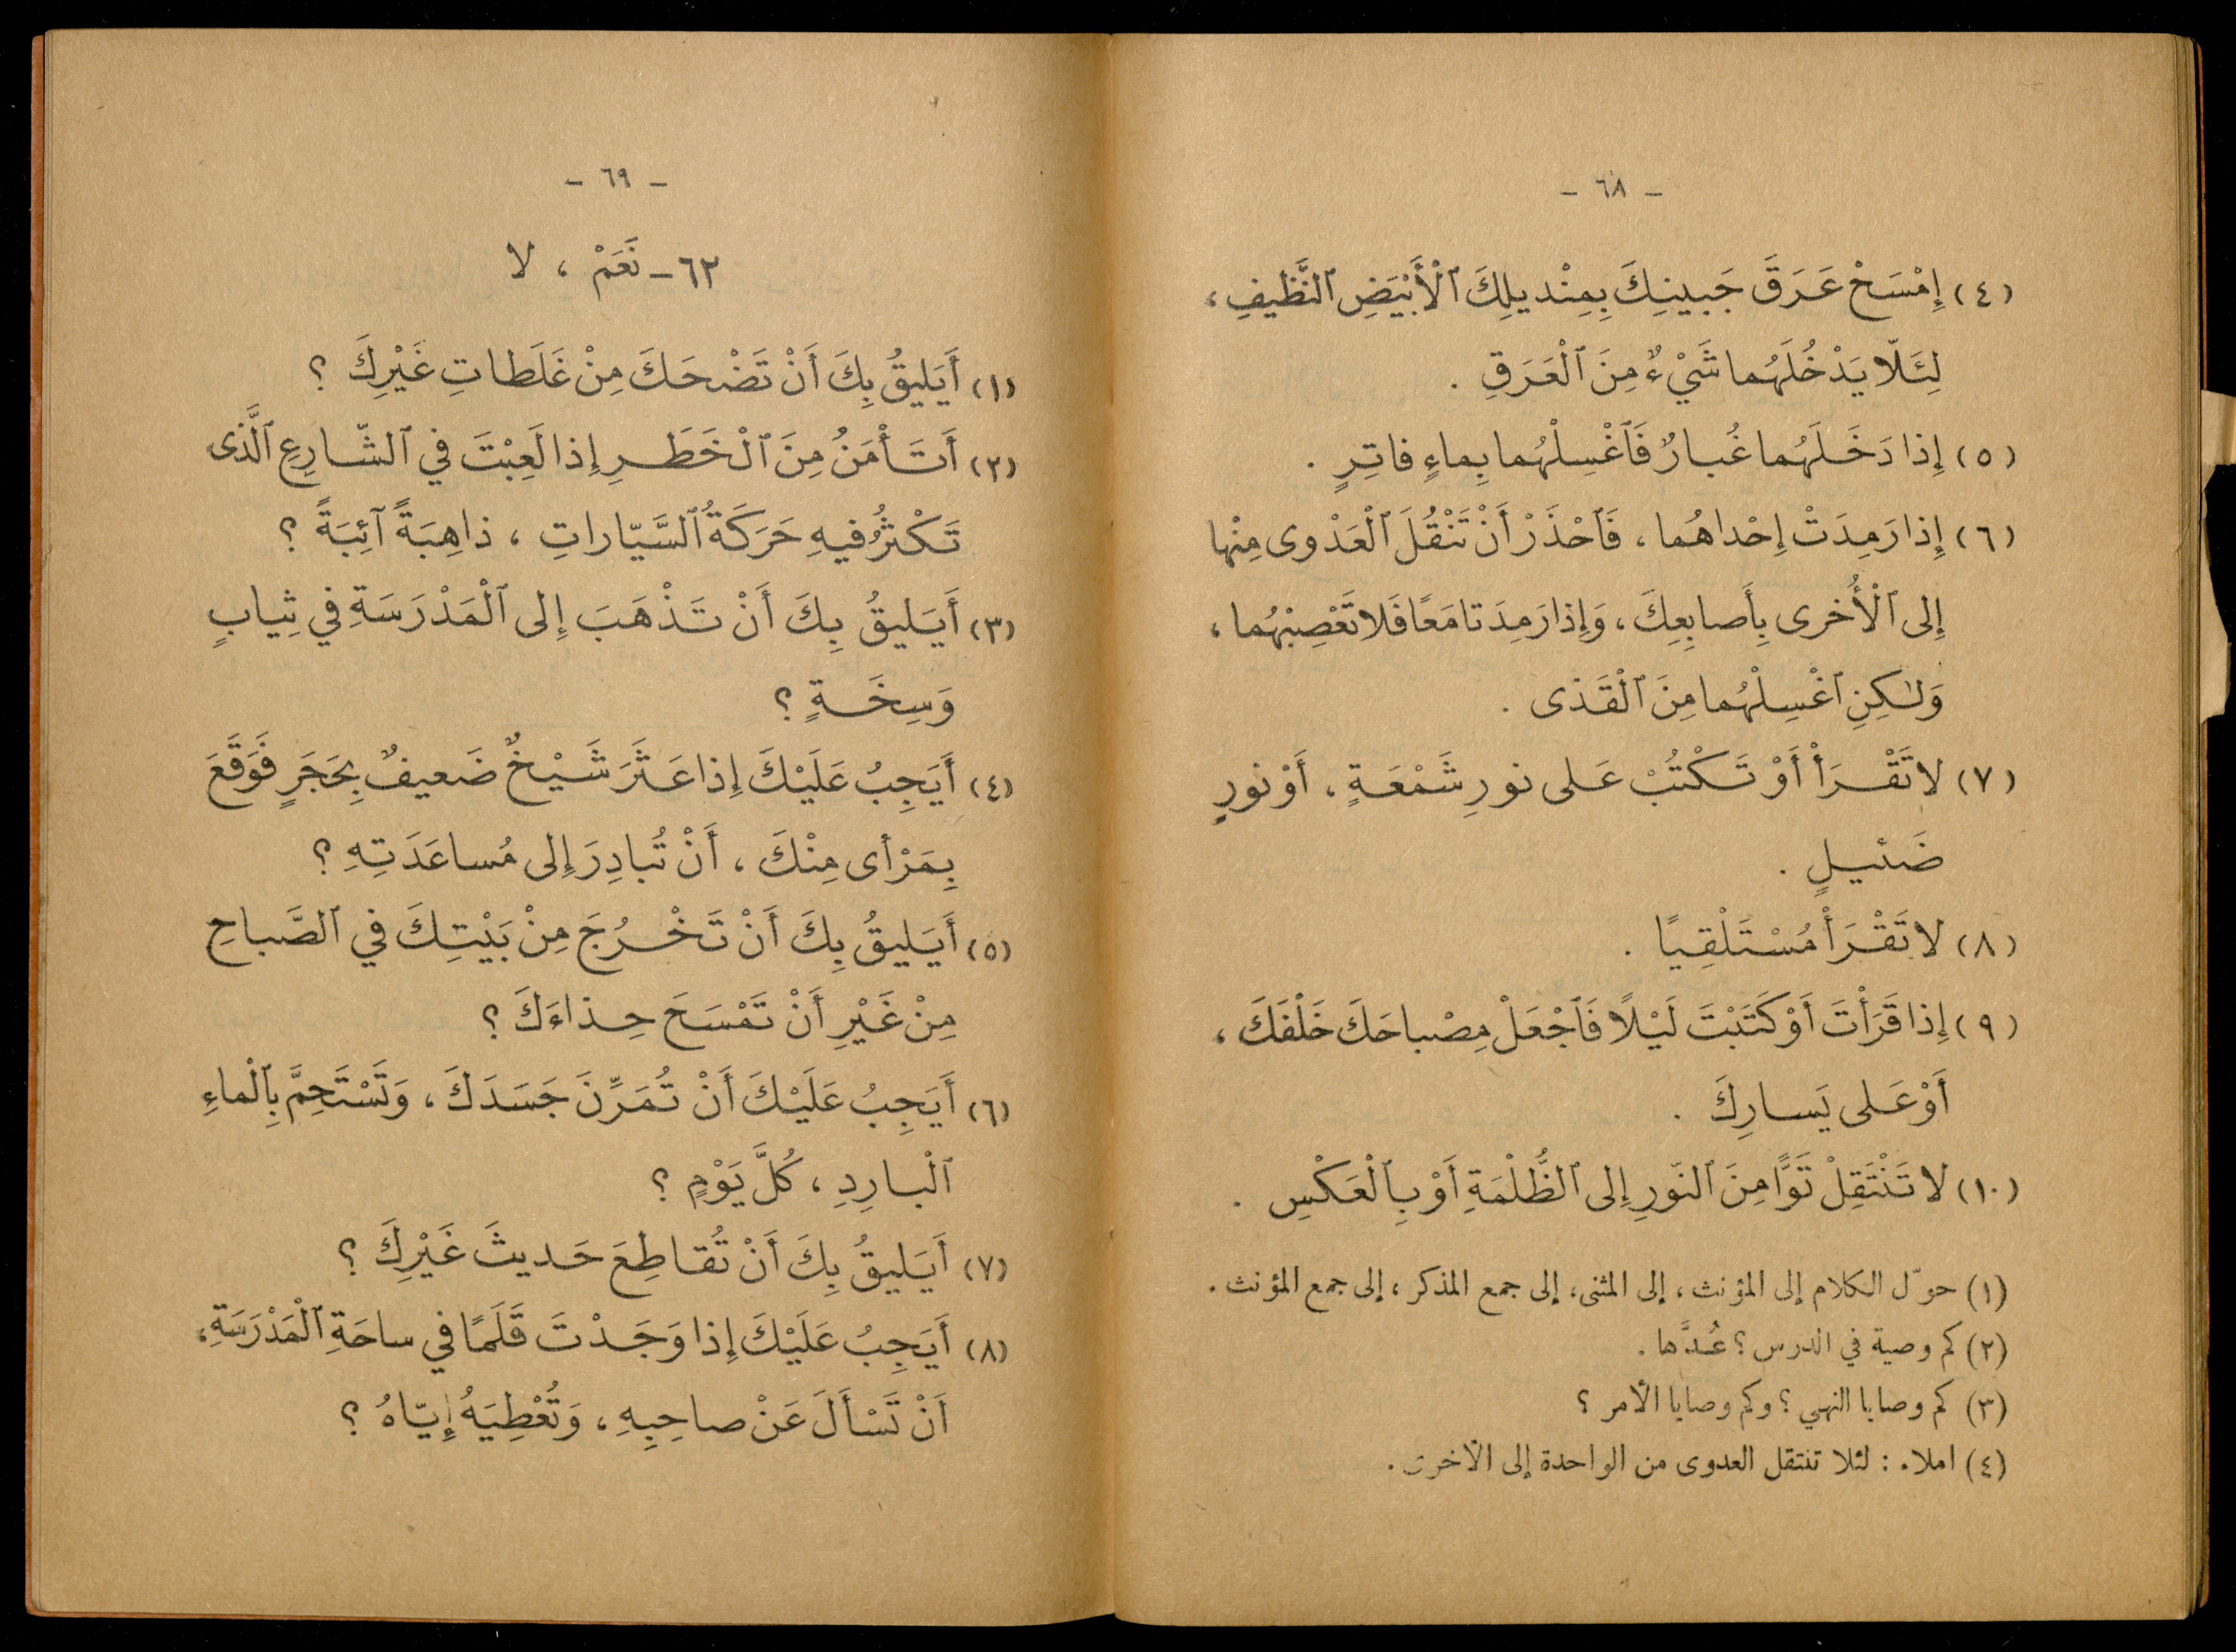 - ٦٨ -
(٤) إِمْسَحْ عَرَقَ جَبينِكَ بِمِنْديلِكَ ٱلْأَبْيَضِ ٱلنَّظيفِ،
لِئَلّا يَدْخُلَهُما شَيْءٌ مِنَ ٱلْعَرَقِ .
(٥) إِذا دَخَلَهُما غُبارٌ فَٱغْسِلْهُما بِماءٍ فاتِرٍ .
(٦) إِذا رَمِدَتْ إِحْداهُما، فَٱحْذَرْ أَنْ تَنْقُلَ ٱلْعَدْوى مِنْها
إِلى ٱلْأُخرى بِأَصابِعِكَ، وَإِذا رَمِدَتا مَعًا فَلا تَعْصِبْهُما،
وَلٰكِنِ ٱغْسِلْهُما مِنَ ٱلْقَذى .
(٧) لا تَقْرَأْ أَوْ تَكْتُبْ عَلى نورِ شَمْعَةٍ، أَوْ نورٍ
ضَئيلٍ .
(٨) لا تَقْرَأْ مُسْتَلْقِيًا .
(٩) إِذا قَرَأْتَ أَوْ كَتَبْتَ لَيْلًا فَٱجْعَلْ مِصْباحَكَ خَلْفَكَ،
أَوْ عَلى يَسارِكَ .
(١٠) لا تَنْتَقِلْ تَوًّا مِنَ ٱلنّورِ إِلى ٱلظُّلْمَةِ أَوْ بِٱلْعَكْسِ .
(١) حوّل الكلام إلى المؤنث، إلى المثنى، إلى جمع المذكر، إلى جمع المؤنث .
(٢) كم وصية في الدرس؟ عُدَّها .
(٣) كم وصايا النهي؟ وكم وصايا الأمر؟
(٤) املاء : لئلا تنتقل العدوى من الواحدة إلى الأخرى .
- ٦٩ -
٦٢ - نَعَمْ، لا
(١) أَيَليقُ بِكَ أَنْ تَضْحَكَ مِنْ غَلَطاتِ غَيْرِكَ؟
(٢) أَتَأْمَنُ مِنَ ٱلْخَطَرِ إِذا لَعِبْتَ في ٱلشّارِعِ ٱلَّذى
تَكْثُرُ فيهِ حَرَكَةُ ٱلسَّيّاراتِ، ذاهِبَةً آئِبَةً؟
(٣) أَيَليقُ بِكَ أَنْ تَذْهَبَ إِلى ٱلْمَدْرَسَةِ في ثِيابٍ
وَسِخَةٍ؟
(٤) أَيَجِبُ عَلَيْكَ إِذا عَثَرَ شَيْخٌ ضَعيفٌ بِحَجَرٍ فَوَقَعَ
بِمَرْأى مِنْكَ، أَنْ تُبادِرَ إِلى مُساعَدَتِهِ؟
(٥) أَيَليقُ بِكَ أَنْ تَخْرُجَ مِنْ بَيْتِكَ في ٱلصَّباحِ
مِنْ غَيْرِ أَنْ تَمْسَحَ حِذاءَكَ؟
(٦) أَيَجِبُ عَلَيْكَ أَنْ تُمَرِّنَ جَسَدَكَ، وَتَسْتَحِمَّ بِٱلْماءِ
ٱلْبارِدِ، كُلَّ يَوْمٍ؟
(٧) أَيَليقُ بِكَ أَنْ تُقاطِعَ حَديثَ غَيْرِكَ؟
(٨) أَيَجِبُ عَلَيْكَ إِذا وَجَدْتَ قَلَمًا في ساحَةِ ٱلْمَدْرَسَةِ،
أَنْ تَسْأَلَ عَنْ صاحِبِهِ، وَتُعْطِيَهُ إِيّاهُ؟